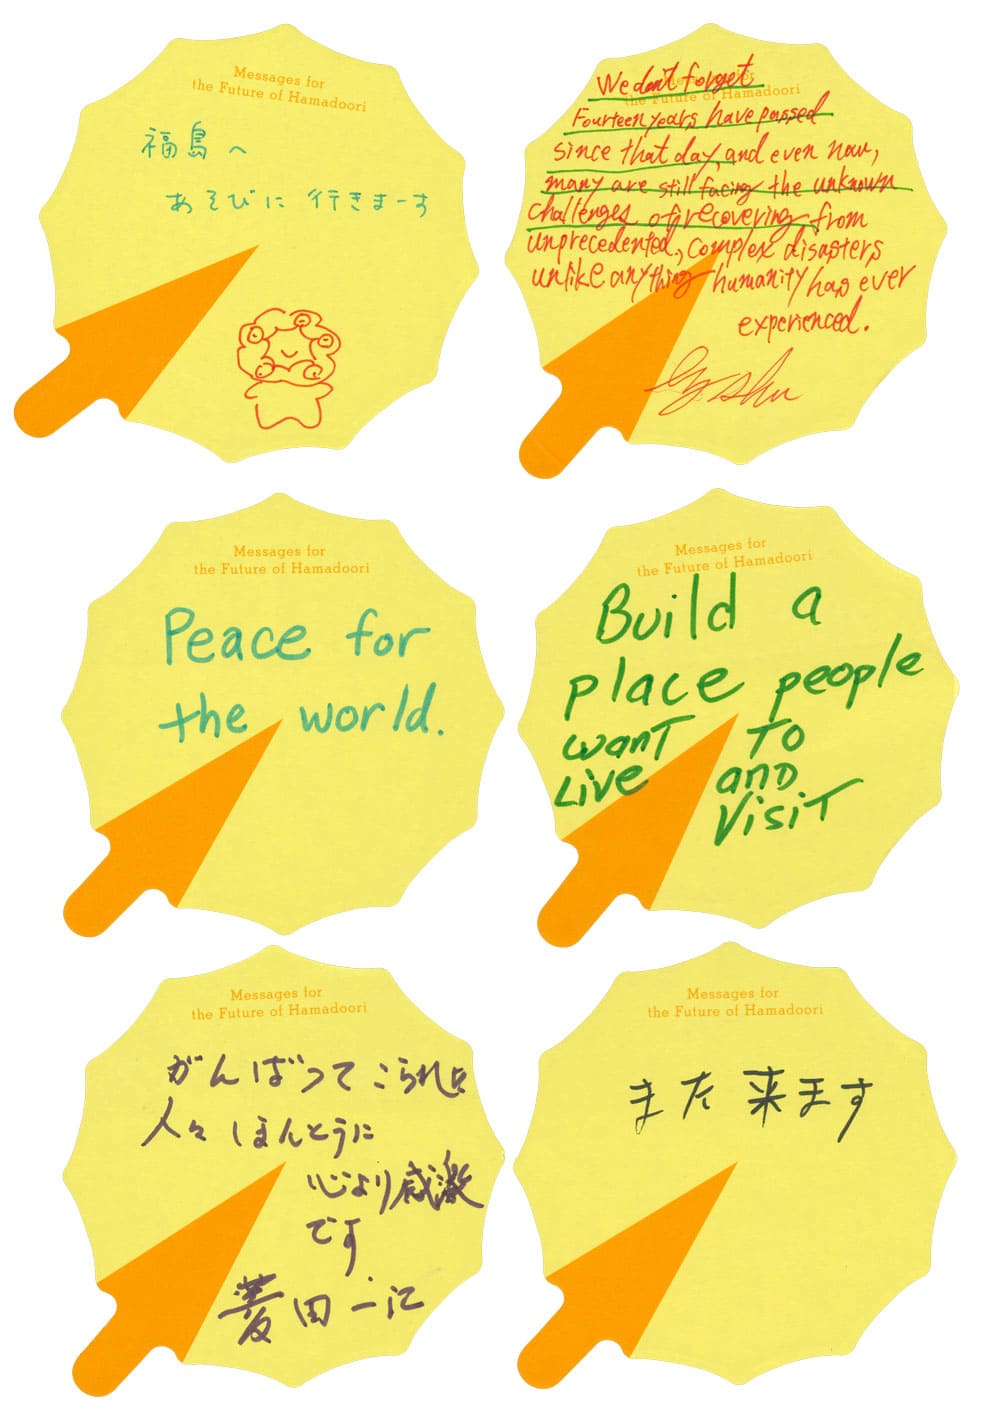 Messages for
the Future of Hamadoori
福島へ
あそびに行きまーす
We don't forget.
the Future of Hamadoori
Fourteen years have passed
since that day, and even now,
many are still facing the unknown
challenges of recovering from
unprecedented, complex disasters
unlike anything humanity has ever
experienced.
Messages for
the Future of Hamadoori
Peace for
the world.
Messages for
the Future of Hamadoori
Build a
place people
want to
Live and
Visit
Messages for
the Future of Hamadoori
がんばってこられた
人々ほんとうに
心より感激
です
菱田一
Messages for
the Future of Hamadoori
また来ます